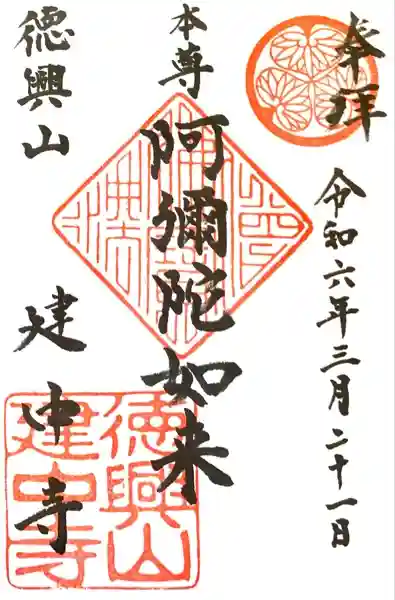 奉拜
令和六年三月二十一日
本尊
阿彌陀如来
德興山
建中寺
德興山
建中寺